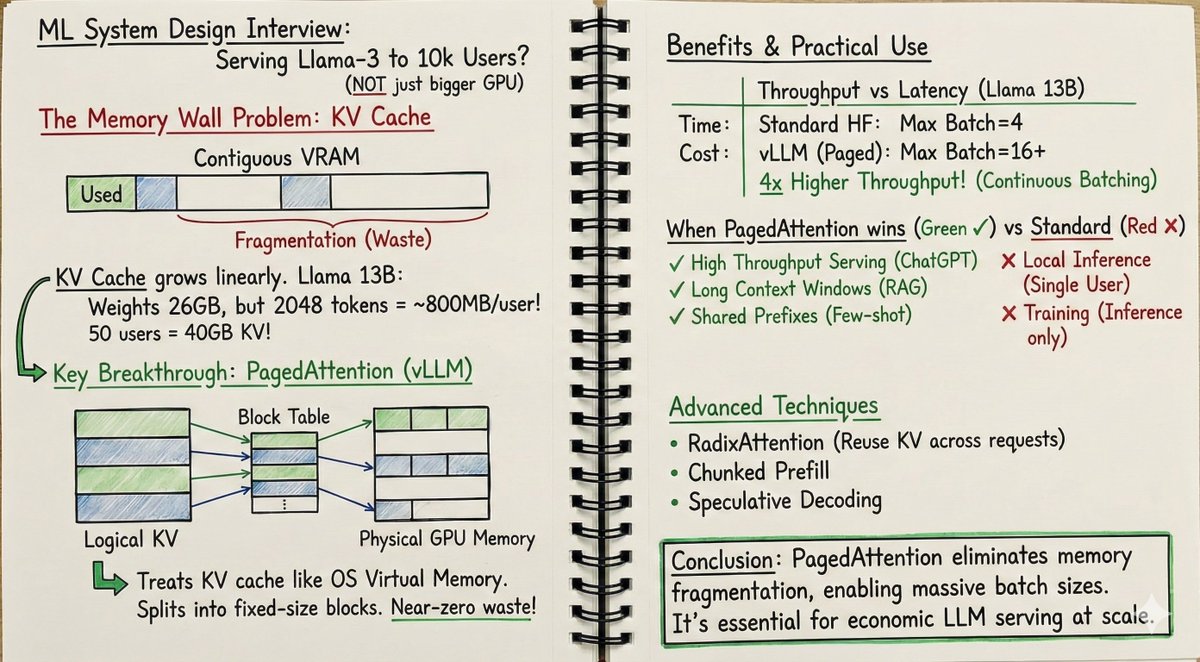 ML System Design Interview:
Serving Llama-3 to 10k Users?
(NOT just bigger GPU)
The Memory Wall Problem: KV Cache
Contiguous VRAM
Used
Fragmentation (Waste)
KV Cache grows linearly. Llama 13B:
Weights 26GB, but 2048 tokens = ~800MB/user!
50 users = 40GB KV!
Key Breakthrough: PagedAttention (vLLM)
Block Table
Logical KV
Physical GPU Memory
Treats KV cache like OS Virtual Memory.
Splits into fixed-size blocks. Near-zero waste!
Benefits & Practical Use
Throughput vs Latency (Llama 13B)
Time: Standard HF: Max Batch=4
Cost: vLLM (Paged): Max Batch=16+
4x Higher Throughput! (Continuous Batching)
When PagedAttention wins (Green ✓) vs Standard (Red ✗)
✓ High Throughput Serving (ChatGPT)
✓ Long Context Windows (RAG)
✓ Shared Prefixes (Few-shot)
✗ Local Inference
(Single User)
✗ Training (Inference
only)
Advanced Techniques
• RadixAttention (Reuse KV across requests)
• Chunked Prefill
• Speculative Decoding
Conclusion: PagedAttention eliminates memory
fragmentation, enabling massive batch sizes.
It's essential for economic LLM serving at scale.